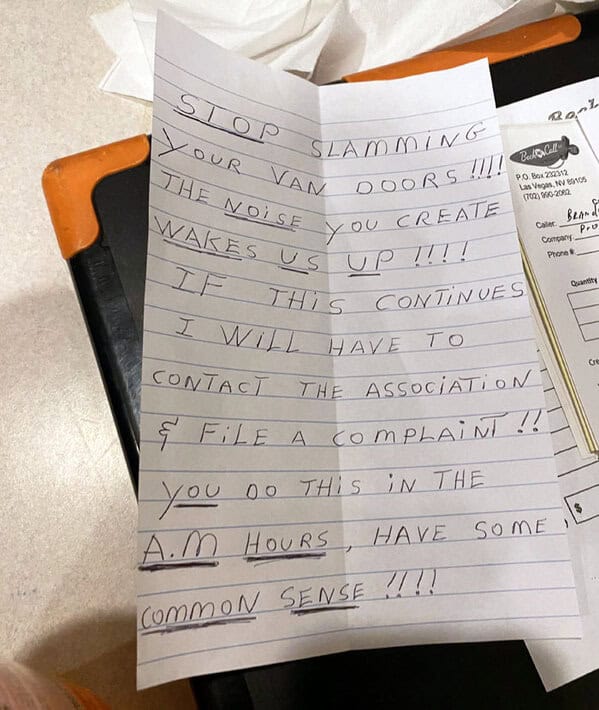 STOP SLAMMING
YOUR VAN DOORS !!!!
THE NOISE YOU CREATE
WAKES US UP !!!!
IF THIS CONTINUES
I WILL HAVE TO
CONTACT THE ASSOCIATION
& FILE A COMPLAINT !!
YOU DO THIS IN THE
A.M HOURS, HAVE SOME
COMMON SENSE !!!!
Beck Call
P.O. Box 232312
Las Vegas, NV 89105
(702) 990-2062
Caller:
Company
Phone #
Quantity
$